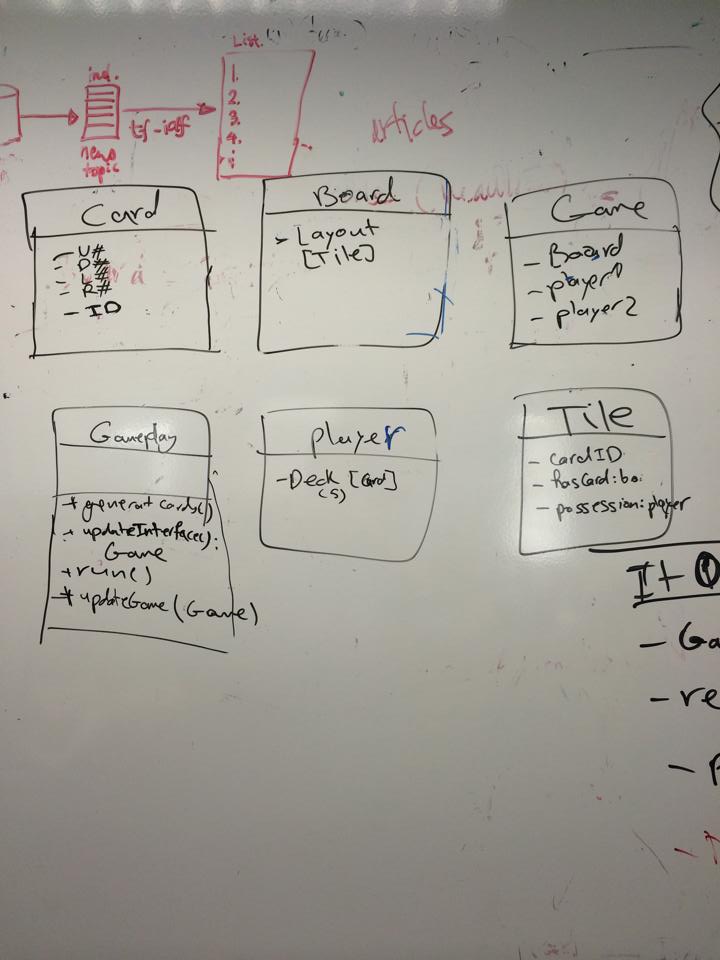 List.
ind.
1.
2.
3.
4.
tf-idf
news
topic
articles
Card
- U#
- D#
- L#
- R#
- ID
Board
- Layout
[Tile]
Game
- Board
- player1
- player2
Gameplay
+ generatCards()
+ updateInterface():
Game
+ run()
+ updateGame(Game)
player
- Deck [Card]
(5)
Tile
- cardID
- hasCard:boi
- possession:player
It 0
- Ga
- re